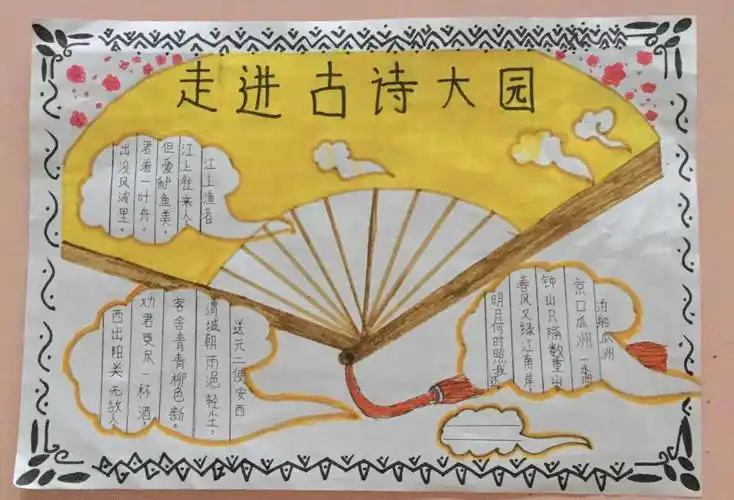 走进古诗大园
江上渔者
江上往来人,
但爱鲈鱼美。
君看一叶舟,
出没风波里。
送元二使安西
渭城朝雨浥轻尘,
客舍青青柳色新。
劝君更尽一杯酒,
西出阳关无故人
泊船瓜洲
京口瓜洲一水间
钟山只隔数重山。
春风又绿江南岸
明月何时照我还